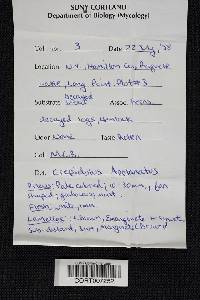 SUNY CORTLAND
Department of Biology (Mycology)
Col no. 3 Date 22 July, '98
Location N.Y., Hamilton Co., Raquette
Lake, Long Point, Plot #3
Substrate decayed Assoc.
decayed logs, hemlock
Odor None Taste
Col. M.C.B.
Det. Crepidotus Applanatus
Pileus: Pale colored; 30mm, fan
shaped; glabrous, moist
Flesh: white, 1mm
Lamellae:
Sub-distant, 3mm, margins
CORT007252